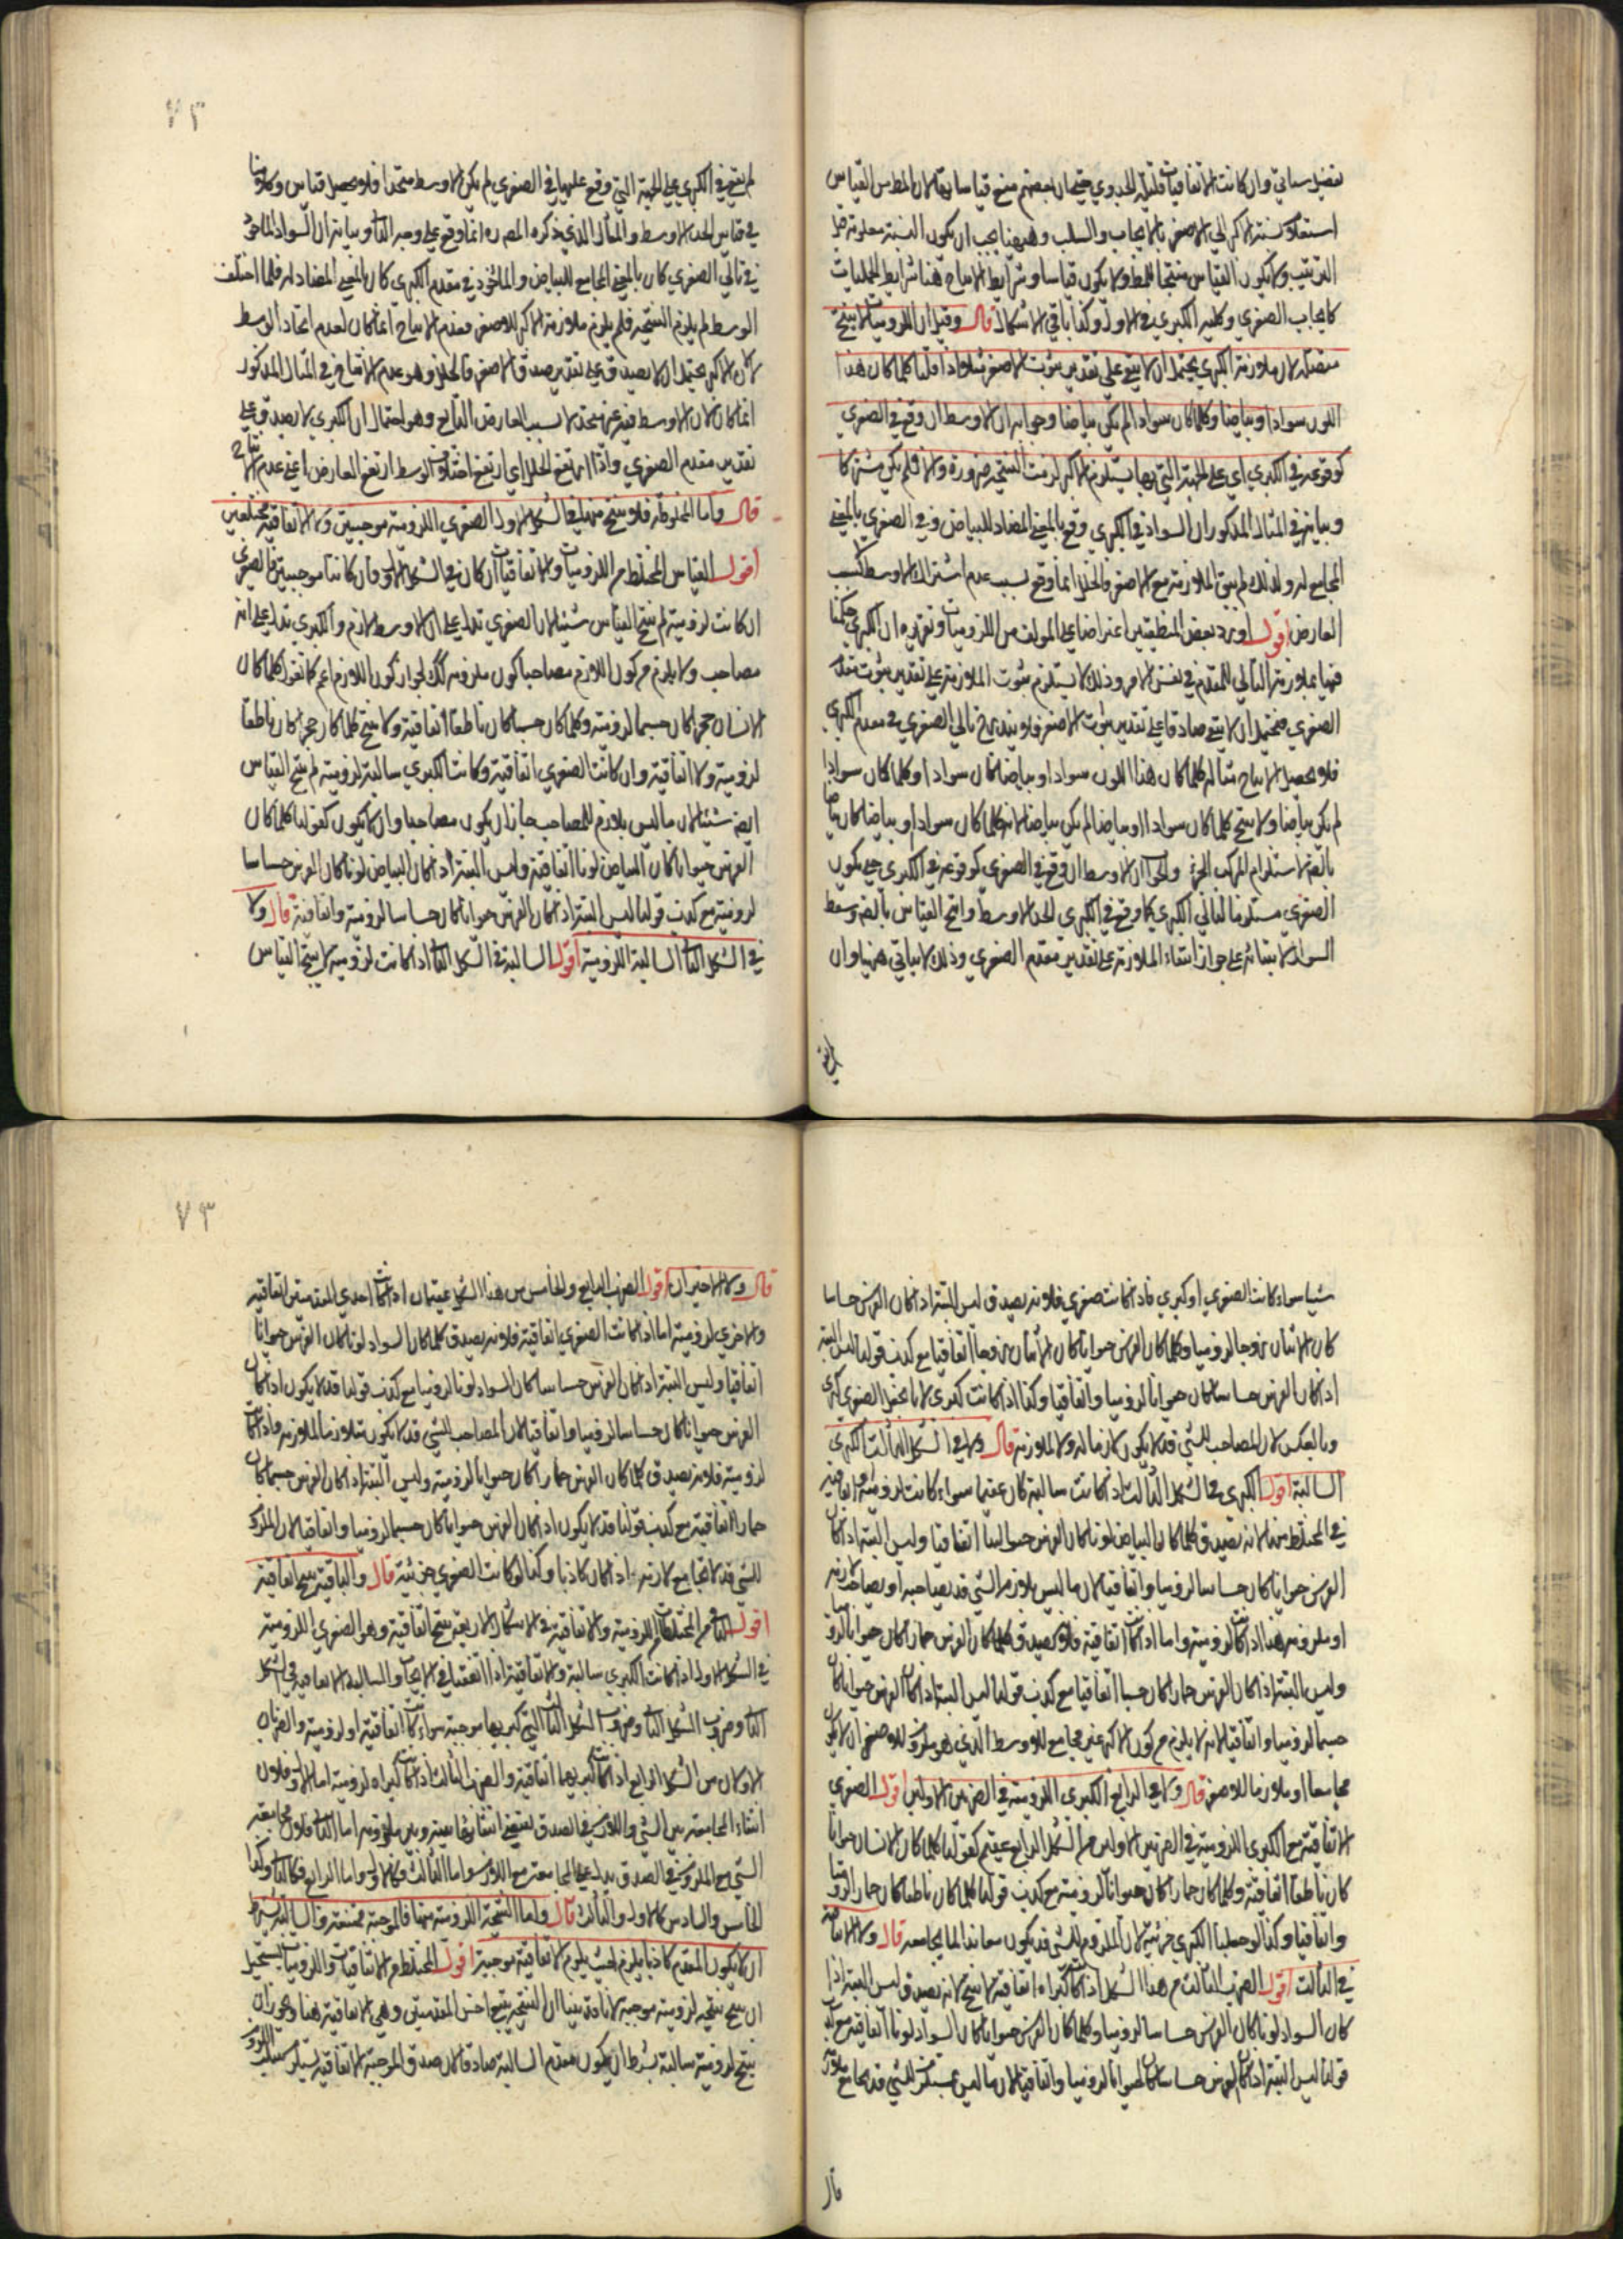 تفصيل سياتي وان كانت الاتفاقيات قليلة الجدوي حتى ان بعضهم منع قياسا بها لان المط من القياس
استعلام نسبة الاكبر الي الاصغر بالايجاب والسلب وههنا يجب ان يكون النسبة معلومة قبل
الترتيب ولا يكون القياس منتجا للمط ولا يكون قياسا وشرايط الانتاج هنا شرايط الحمليات
كايجاب الصغري وكلية الكبري في الاول وكذا باقي الاشكال قال وقيل ان اللزوميات لا ينتج
متصلة لان ملازمة الكبري يحتمل ان لا يبقي علي تقدير ثبوت الاصغر مثلا اذا قلنا كلما كان هذا
اللون سوادا وبياضا وكلما كان سوادا لم يكن بياضا وجوابه ان الاوسط ان وقع في الصغري
كوقوعه في الكبري اي علي الجهة التي بها يستلزم الاكبر لزمت النتيجة ضرورة والا فلم يكن مشتركا
وبيانه في المثال المذكور ان السواد في الكبري وقع بالمعني المضاد للبياض وفي الصغري بالمعني
المجامع له ولذلك لم يبق الملازمة مع الاصغر فالخلل انما وقع لسبب عدم اشتراك الاوسط لا لسبب
العارض اقول اورد بعض المنطقيين اعتراضا علي المولف من اللزوميات وتقريره ان الكبري حكمنا
فيها بملازمة التالي للمقدم في نفس الامر وذلك لا يستلزم ثبوت الملازمة علي تقدير ثبوت مقدم
الصغري فيحتمل ان لا يبقي صادقا علي تقدير ثبوت الاصغر فلا يندرج تالي الصغري في مقدم الكبري
فلا يحصل الانتاج مثاله كلما كان هذا اللون سوادا وبياضا كان سوادا وكلما كان سوادا
لم يكن بياضا ولا ينتج كلما كان سوادا وبياضا لم يكن بياضا لانه كلما كان سوادا وبياضا كان بياضا
بالضرورة لاستلزام المركب الجزء والجواب ان الاوسط ان وقع في الصغري كوقوعه في الكبري حتى يكون
الصغري مستلزما لتالي الكبري كما وقع في الكبري اتحد الاوسط وانتج القياس بالضرورة وسقط
السوال لابتنائه علي جواز انتفاء الملازمة علي تقدير مقدم الصغري وذلك لا ياتي ههنا وان
لم يقع
٧٢
لم يقع في الكبري علي الجهة التي وقع عليها في الصغري لم يكن الاوسط متحدا فلا يحصل قياس وكلامنا
في قياس اتحد الاوسط والمثال الذي ذكره المصره انما وقع علي وجه الثاني وبيانه ان السواد الماخوذ
في تالي الصغري كان بالمعني المجامع للبياض والماخوذ في مقدم الكبري كان بالمعني المضاد له فلما اختلف
الوسط لم يلزم النتيجة فلم يلزم ملازمة الاكبر للاصغر فعدم الانتاج انما كان لعدم اتحاد الوسط
لا لان الاكبر يحتمل ان لا يصدق علي تقدير صدق الاصغر فالخلل وهو عدم الانتاج في المثال المذكور
انما كان لان الاوسط فيه غير متحد لا بسبب العارض التابع وهو احتمال ان الكبري لا يصدق علي
تقدير مقدم الصغري واذا ارتفع الخلل اي ارتفع اختلاف الوسط ارتفع العارض اعني عدم الانتاج
قال واما المخلوطة فلا ينتج منها في الشكل الاول الصغري اللزومية موجبتين ولا الاتفاقية مختلفتين
اقول القياس المختلط من اللزوميات والاتفاقيات ان كان في الشكل الاول وكانتا موجبتين فالصغري
ان كانت لزومية لم ينتج القياس شيئا لان الصغري تدل علي ان الاوسط لازم والكبري تدل علي انه
مصاحب ولا يلزم من كون اللازم مصاحبا كون ملزومه كذلك لجواز كون اللازم اعم كما نقول كلما كان
الانسان حجرا كان جسما لزومية وكلما كان جسما كان ناطقا اتفاقية ولا ينتج كلما كان حجرا كان ناطقا
لزومية ولا اتفاقية وان كانت الصغري اتفاقية وكانت الكبري سالبة لزومية لم ينتج القياس
ايضا شيئا لان ما ليس بلازم للمصاحب جاز ان يكون مصاحبا وان لا يكون كقولنا كلما كان
الفرس حيوانا كان البياض لونا اتفاقية وليس البتة اذا كان البياض لونا كان الفرس حساسا
لزومية مع كذب قولنا ليس البتة اذا كان الفرس حيوانا كان حساسا لزومية واتفاقية قال ولا
في الشكل الثاني السالبة اللزومية اقول السالبة في الشكل الثاني اذا كانت لزومية لا ينتج القياس
شيئا سواء كانت الصغري او كبري فاذا كانت صغري فلانه يصدق ليس البتة اذا كان الفرس حساسا
كان الاثنان زوجا لزوميا وكلما كان الفرس حيوانا كان الاثنان زوجا اتفاقيا مع كذب قولنا ليس البتة
اذا كان الفرس حساسا كان حيوانا لزوميا واتفاقيا وكذا اذا كانت كبري لانا نجعل الصغري كبري
وبالعكس لان المصاحب للشي قد لا يكون لازما له ولا لملازمه قال ولا في الشكل الثالث الكبري
السالبة اقول الكبري في الشكل الثالث اذا كانت سالبة كان عقيما سواء كانت لزومية او اتفاقية
في المختلط منها لانه يصدق كلما كان البياض لونا كان الفرس حيوانا اتفاقيا وليس البتة اذا كان
الفرس حيوانا كان حساسا لزوميا واتفاقيا لان ما ليس بلازم الشي قد يصاحبه او يصاحب لازمه
او ملزومه هذا اذا كانت لزومية واما اذا كانت اتفاقية فلانه يصدق كلما كان الفرس حمارا كان حيوانا لزوميا
وليس البتة اذا كان الفرس حمارا كان جسما اتفاقيا مع كذب قولنا ليس البتة اذا كان الفرس حيوانا كان
جسما لزوميا واتفاقيا لانه لا يلزم من كون الاكبر غير مجامع للاوسط الذي هو ملزوم للاصغر ان لا يكون
مجامعا او ملازما للاصغر قال ولا في الرابع الكبري اللزومية في الضربين الاولين اقول الصغري
الاتفاقية مع الكبري اللزومية في الضربين الاولين من الشكل الرابع عقيم كقولنا كلما كان الانسان حيوانا
كان ناطقا اتفاقية وكلما كان حمارا كان حيوانا لزومية مع كذب قولنا كلما كان ناطقا كان حمارا لزوميا
واتفاقيا وكذا لو جعلنا الكبري جزئية لان الملزوم للشي قد يكون معاندا لما يجامعه قال ولا الاتفاقية
في الثالث اقول الضرب الثالث من هذا الشكل اذا كانت كبراه اتفاقية لا ينتج لانه يصدق ليس البتة اذا
كان السواد لونا كان الفرس حساسا لزوميا وكلما كان الفرس حيوانا كان السواد لونا اتفاقية مع كذب
قولنا ليس البتة اذا كان الفرس حساسا كان حيوانا لزوميا واتفاقيا لان ما ليس بمستلزم للشي قد يجامع ملازمه
قال
٧٣
قال ولا الاخيران اقول الضرب الرابع والخامس من هذا الشكل عقيمان اذا كانت احدي المقدمتين اتفاقية
والاخري لزومية اما اذا كانت الصغري اتفاقية فلانه يصدق كلما كان السواد لونا كان الفرس حيوانا
اتفاقيا وليس البتة اذا كان الفرس حساسا كان السواد لونا لزوميا مع كذب قولنا قد لا يكون اذا كان
الفرس حيوانا كان حساسا لزوميا واتفاقيا لان المصاحب للشي قد لا يكون ملازما لملازمه واذا كانت
لزومية فلانه يصدق كلما كان الفرس حمارا كان حيوانا لزومية وليس البتة اذا كان الفرس جسما كان
حمارا اتفاقية مع كذب قولنا قد لا يكون اذا كان الفرس حيوانا كان جسما لزوميا واتفاقيا لان الملزوم
للشي قد لا يجامع لازمه اذا كان كاذبا وكذا لو كانت الصغري جزئية قال والباقية ينتج اتفاقية
اقول الباقي من المختلطات اللزومية والاتفاقية في الاشكال الاربعة ينتج اتفاقية وهو الصغري اللزومية
في الشكل الاول اذا كانت الكبري سالبة والاتفاقية اذا اتفقتا في الايجاب والسالبة الاتفاقية في الشكل
الثاني وضروب الشكل الثاني وضروب الشكل الثالث التي كبريها موجبة سواء كانت اتفاقية او لزومية والضربان
الاولان من الشكل الرابع اذا كانت كبريهما اتفاقية والضرب الثالث اذا كانت كبراه لزومية اما الاول فلان
انتفاء المجامعة بين الشي واللازم في الصدق يقتضي انتفاءها بينه وبين ملزومه اما الثاني فلان مجامعة
الشي مع الملزوم في الصدق يدل علي المجامعة مع اللازم واما الثالث فكالاول واما الرابع فكالثاني وكذا
الخامس والسادس كالاول والثالث قال واما النتيجة اللزومية منها فالموجبة ممتنعة والسالبة بشرط
ان لا يكون المقدم كاذبا يلزم حيث يلزم الاتفاقية موجبة اقول المختلط من الاتفاقيات واللزوميات يستحيل
ان ينتج نتيجة لزومية موجبة لانا قد بينا ان النتيجة يتبع اخس المقدمتين وهي الاتفاقية هنا ويجوز ان
ينتج لزومية سالبة بشرط ان يكون مقدم السالبة صادقا لان صدق الموجبة الاتفاقية يستلزم سلب اللزوم